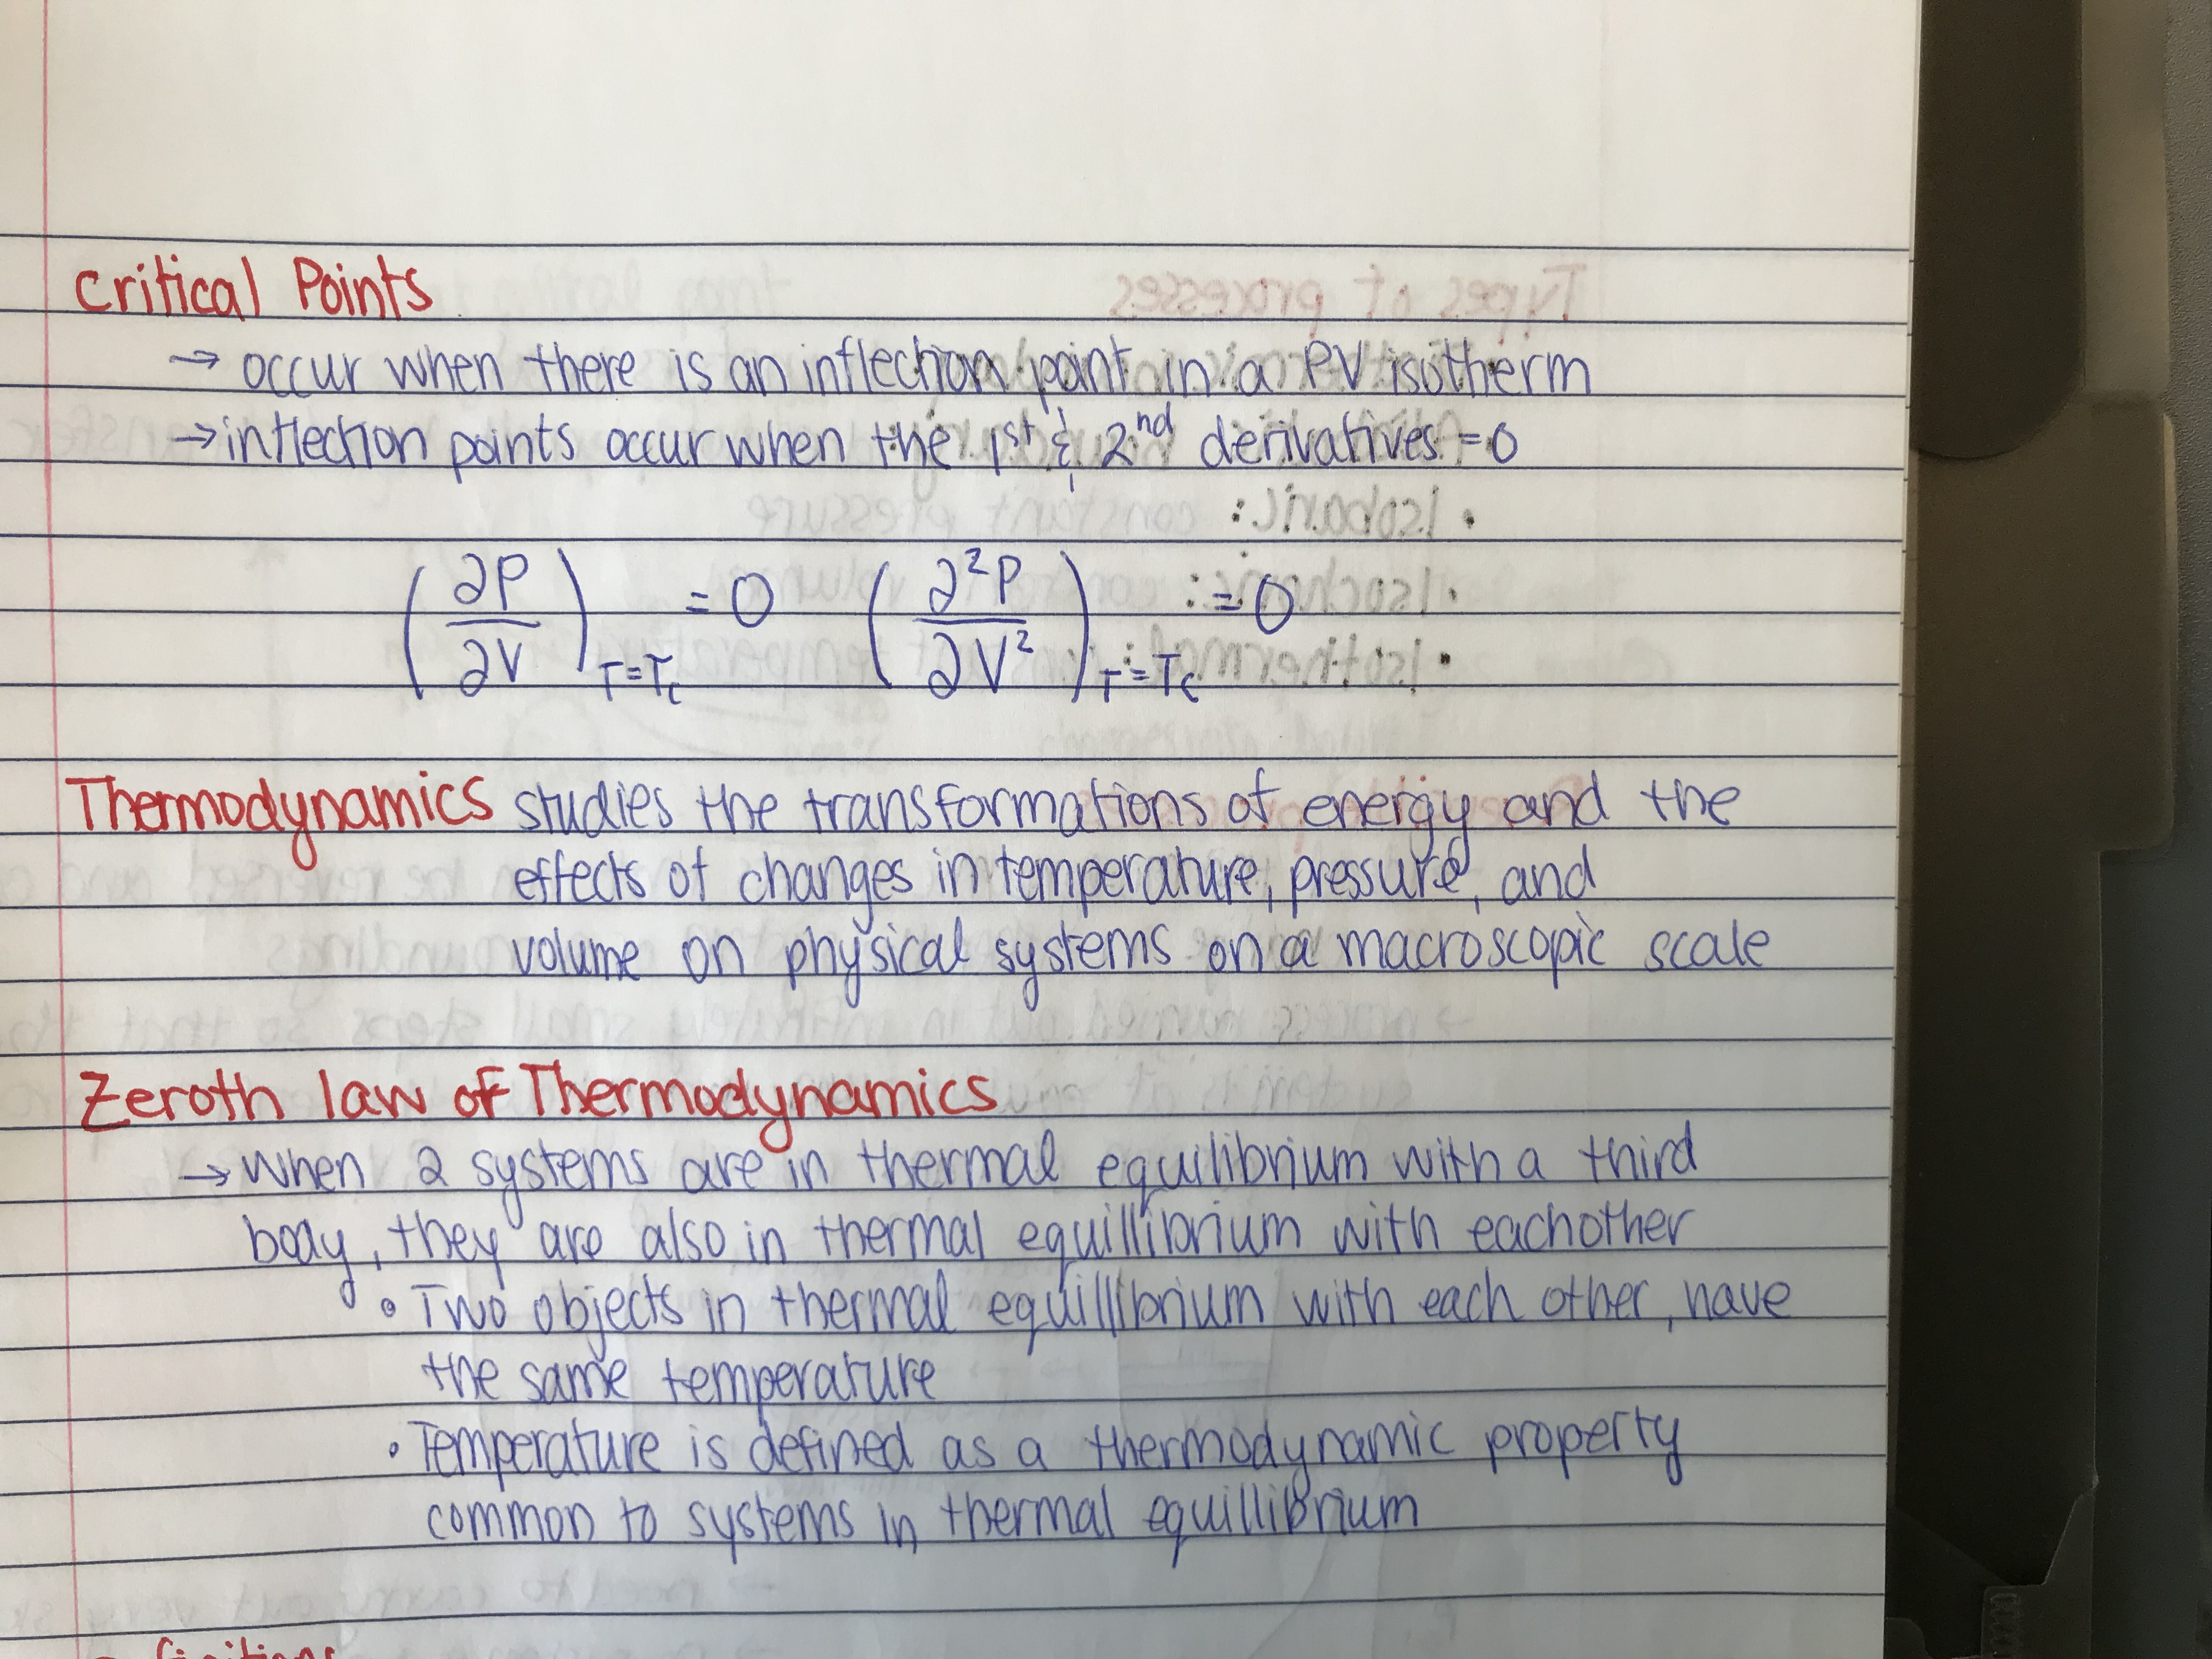 Critical Points
→ occur when there is an inflection point in a PV isotherm
→ inflection points occur when the 1st & 2nd derivatives = 0
(∂P/∂V)T=Tc = 0 (∂²P/∂V²)T=Tc = 0
Thermodynamics studies the transformations of energy and the
effects of changes in temperature, pressure, and
volume on physical systems on a macroscopic scale
Zeroth law of Thermodynamics
→ When 2 systems are in thermal equilibrium with a third
body, they are also in thermal equillibrium with eachother
• Two objects in thermal equillibrium with each other, have
the same temperature
• Temperature is defined as a thermodynamic property
common to systems in thermal equillibrium